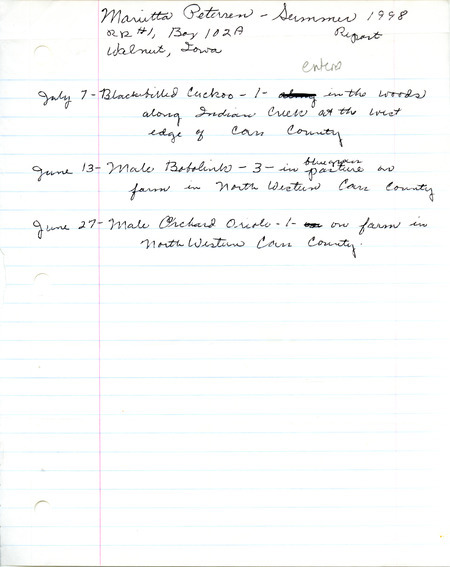 Marietta Petersen - Summer 1998
RR #1, Box 102A Report
Walnut, Iowa
July 7 - Blackbilled Cuckoo - 1 - along in the woods
along Indian Creek at the west
edge of Cass County
June 13 - Male Bobolink - 3 - in bluegrass pasture on
farm in North Western Cass County
June 27 - Male Orchard Oriole - 1 - on farm in
North Western Cass County.